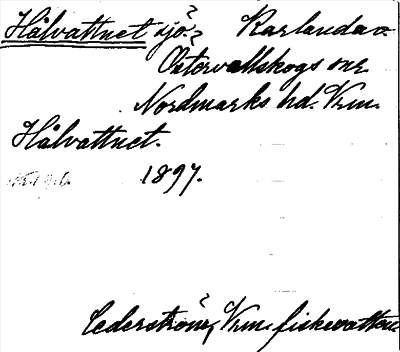 Hålvattnet sjö? Karlanda o.
Östervallskogs snr
Nordmarks hd. Vrm.
Hålvattnet.
1897.
Cederström, Vrm. fiskevatten